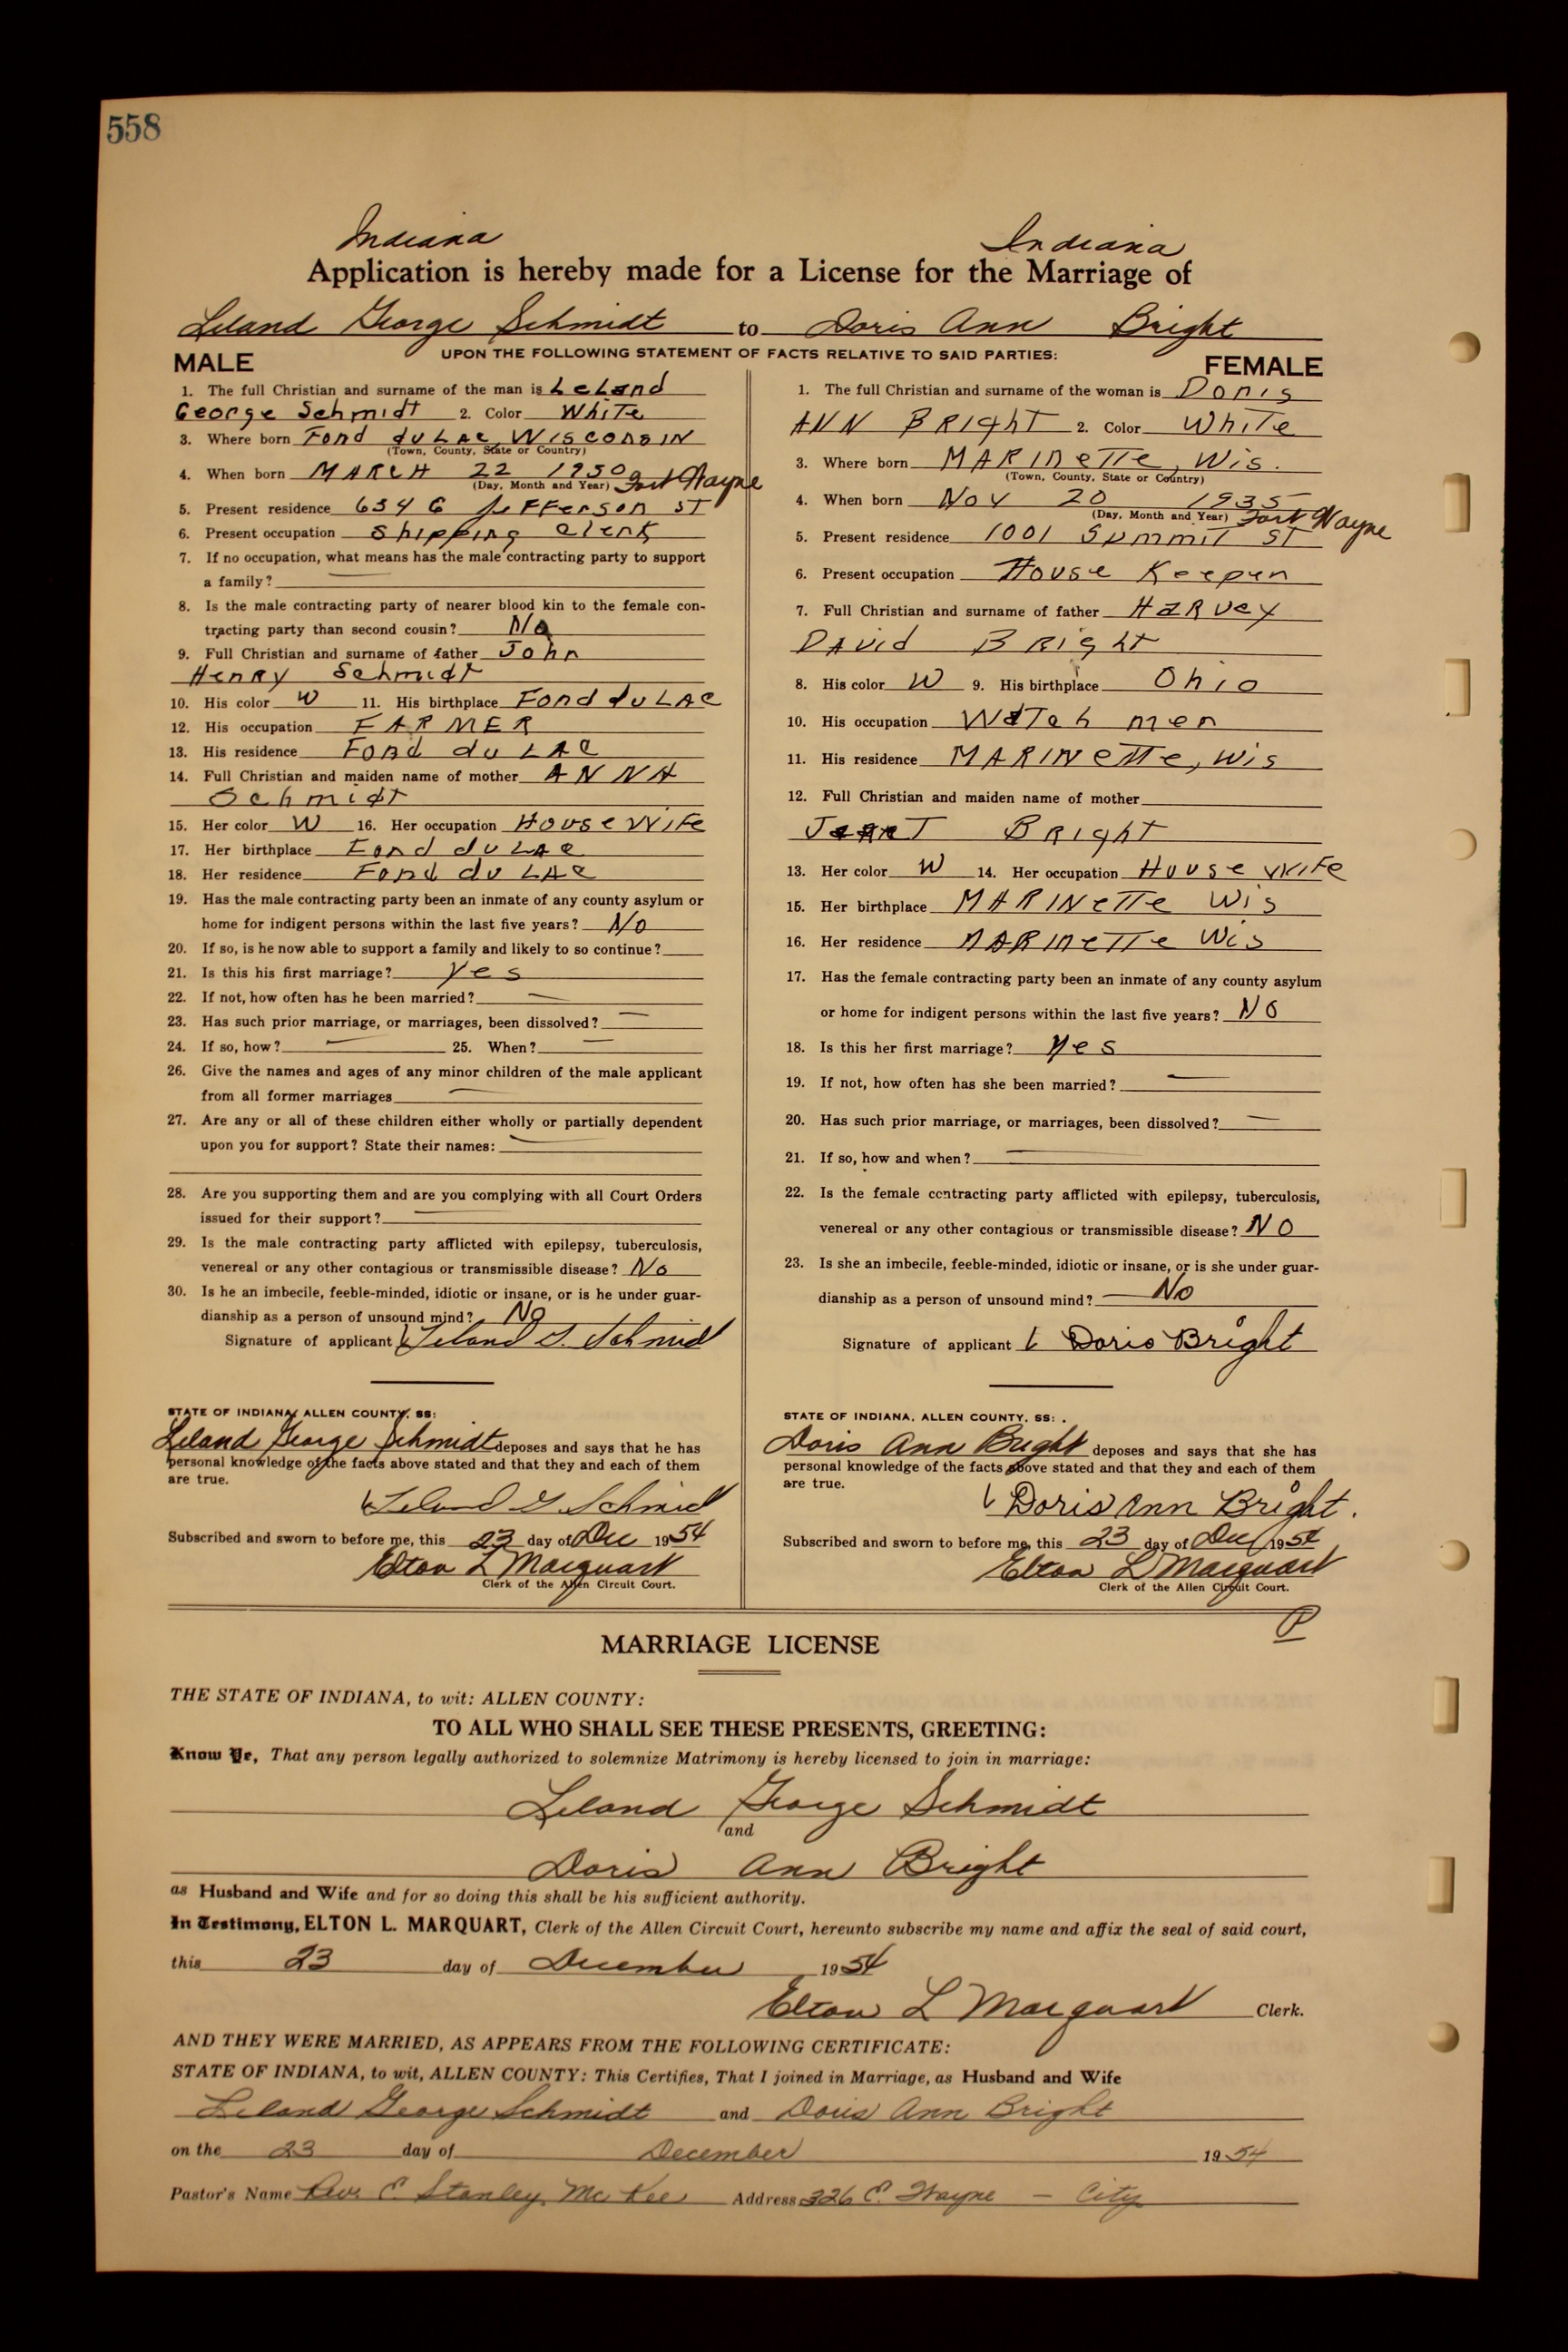 558
Indiana Indiana
Application is hereby made for a License for the Marriage of
Leland George Schmidt to Doris Ann Bright
UPON THE FOLLOWING STATEMENT OF FACTS RELATIVE TO SAID PARTIES:
MALE
1. The full Christian and surname of the man is Leland
George Schmidt 2. Color White
3. Where born Fond du LAC, WISCONSIN
(Town, County, State or Country)
4. When born MARCH 22 1930
(Day, Month and Year) Fort Wayne
5. Present residence 634 E Jefferson ST
6. Present occupation Shipping Clerk
7. If no occupation, what means has the male contracting party to support
a family? —
8. Is the male contracting party of nearer blood kin to the female con-
tracting party than second cousin? No
9. Full Christian and surname of father John
Henry Schmidt
10. His color W 11. His birthplace Fond du LAC
12. His occupation FARMER
13. His residence Fond du LAC
14. Full Christian and maiden name of mother ANNA
Schmidt
15. Her color W 16. Her occupation HouseWife
17. Her birthplace Fond du LAC
18. Her residence Fond du LAC
19. Has the male contracting party been an inmate of any county asylum or
home for indigent persons within the last five years? No
20. If so, is he now able to support a family and likely to so continue?
21. Is this his first marriage? Yes
22. If not, how often has he been married? —
23. Has such prior marriage, or marriages, been dissolved? —
24. If so, how? — 25. When? —
26. Give the names and ages of any minor children of the male applicant
from all former marriages —
27. Are any or all of these children either wholly or partially dependent
upon you for support? State their names: —
28. Are you supporting them and are you complying with all Court Orders
issued for their support? —
29. Is the male contracting party afflicted with epilepsy, tuberculosis,
venereal or any other contagious or transmissible disease? No
30. Is he an imbecile, feeble-minded, idiotic or insane, or is he under guar-
dianship as a person of unsound mind? No
Signature of applicant Leland G. Schmidt
STATE OF INDIANA, ALLEN COUNTY, SS:
Leland George Schmidt deposes and says that he has
personal knowledge of the facts above stated and that they and each of them
are true.
Leland G Schmidt
Subscribed and sworn to before me, this 23 day of Dec 1954
Elton L Marquart
Clerk of the Allen Circuit Court.
FEMALE
1. The full Christian and surname of the woman is Doris
ANN BRIGHT 2. Color White
3. Where born MARINETTE, Wis.
(Town, County, State or Country)
4. When born Nov 20 1935
(Day, Month and Year) Fort Wayne
5. Present residence 1001 Summit ST
6. Present occupation House Keeper
7. Full Christian and surname of father HARVEY
DAVID BRIGHT
8. His color W 9. His birthplace Ohio
10. His occupation Watch men
11. His residence MARINETTE, Wis
12. Full Christian and maiden name of mother
BRIGHT
13. Her color W 14. Her occupation House Wife
15. Her birthplace MARINETTE Wis
16. Her residence MARINETTE Wis
17. Has the female contracting party been an inmate of any county asylum
or home for indigent persons within the last five years? NO
18. Is this her first marriage? Yes
19. If not, how often has she been married? —
20. Has such prior marriage, or marriages, been dissolved? —
21. If so, how and when? —
22. Is the female contracting party afflicted with epilepsy, tuberculosis,
venereal or any other contagious or transmissible disease? NO
23. Is she an imbecile, feeble-minded, idiotic or insane, or is she under guar-
dianship as a person of unsound mind? No
Signature of applicant Doris Bright
STATE OF INDIANA, ALLEN COUNTY, SS:
Doris Ann Bright deposes and says that she has
personal knowledge of the facts above stated and that they and each of them
are true.
Doris Ann Bright.
Subscribed and sworn to before me, this 23 day of Dec 1954
Elton L Marquart
Clerk of the Allen Circuit Court.
P
MARRIAGE LICENSE
THE STATE OF INDIANA, to wit: ALLEN COUNTY:
TO ALL WHO SHALL SEE THESE PRESENTS, GREETING:
Know Ye, That any person legally authorized to solemnize Matrimony is hereby licensed to join in marriage:
Leland George Schmidt
and
Doris Ann Bright
as Husband and Wife and for so doing this shall be his sufficient authority.
In Testimony, ELTON L. MARQUART, Clerk of the Allen Circuit Court, hereunto subscribe my name and affix the seal of said court,
this 23 day of December 1954
Elton L Marquart Clerk.
AND THEY WERE MARRIED, AS APPEARS FROM THE FOLLOWING CERTIFICATE:
STATE OF INDIANA, to wit, ALLEN COUNTY: This Certifies, That I joined in Marriage, as Husband and Wife
Leland George Schmidt and Doris Ann Bright
on the 23 day of December 1954
Pastor's Name Rev. C. Stanley McKee Address 326 E. Wayne — City